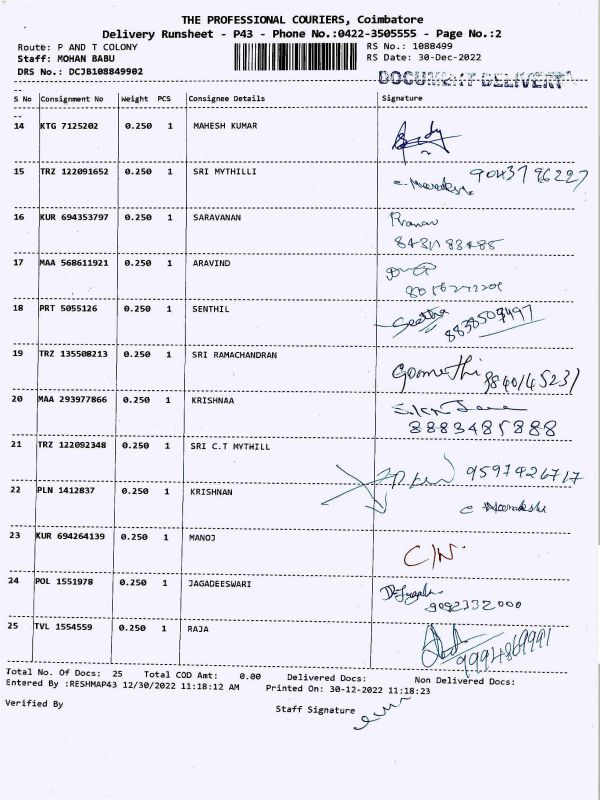 THE PROFESSIONAL COURIERS, Coimbatore
Delivery Runsheet - P43 - Phone No.:0422-3505555 - Page No.:2
Route: P AND T COLONY RS No.: 1088499
Staff: MOHAN BABU RS Date: 30-Dec-2022
DRS No.: DCJB108849902
DOCUMENT DELIVERY
S No Consignment No Weight PCS Consignee Details Signature
14 KTG 7125202 0.250 1 MAHESH KUMAR
15 TRZ 122091652 0.250 1 SRI MYTHILLI 9043796227
16 KUR 694353797 0.250 1 SARAVANAN
8431183485
17 MAA 568611921 0.250 1 ARAVIND
18 PRT 5055126 0.250 1 SENTHIL
8838509497
19 TRZ 135508213 0.250 1 SRI RAMACHANDRAN
Goomathi 8840145231
20 MAA 293977866 0.250 1 KRISHNAA
8883485888
21 TRZ 122092348 0.250 1 SRI C.T MYTHILL
9597426717
22 PLN 1412837 0.250 1 KRISHNAN
23 KUR 694264139 0.250 1 MANOJ
C/N.
24 POL 1551978 0.250 1 JAGADEESWARI
9092332000
25 TVL 1554559 0.250 1 RAJA
9994869991
Total No. Of Docs: 25 Total COD Amt: 0.00 Delivered Docs: Non Delivered Docs:
Entered By :RESHMAP43 12/30/2022 11:18:12 AM Printed On: 30-12-2022 11:18:23
Verified By Staff Signature